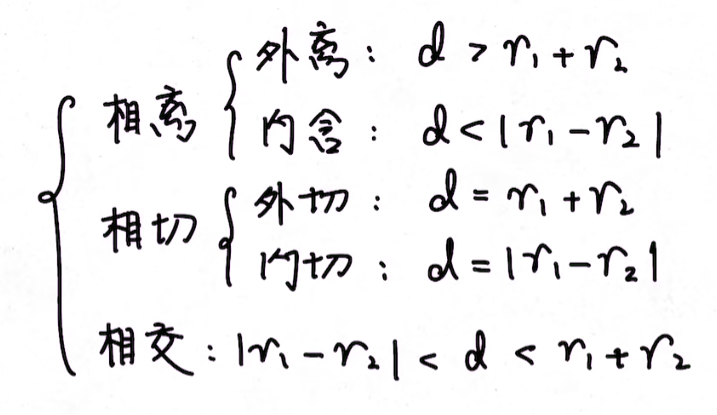 相离
外离： d > r₁ + r₂
内含： d < |r₁ - r₂|
相切
外切： d = r₁ + r₂
内切： d = |r₁ - r₂|
相交：|r₁ - r₂| < d < r₁ + r₂